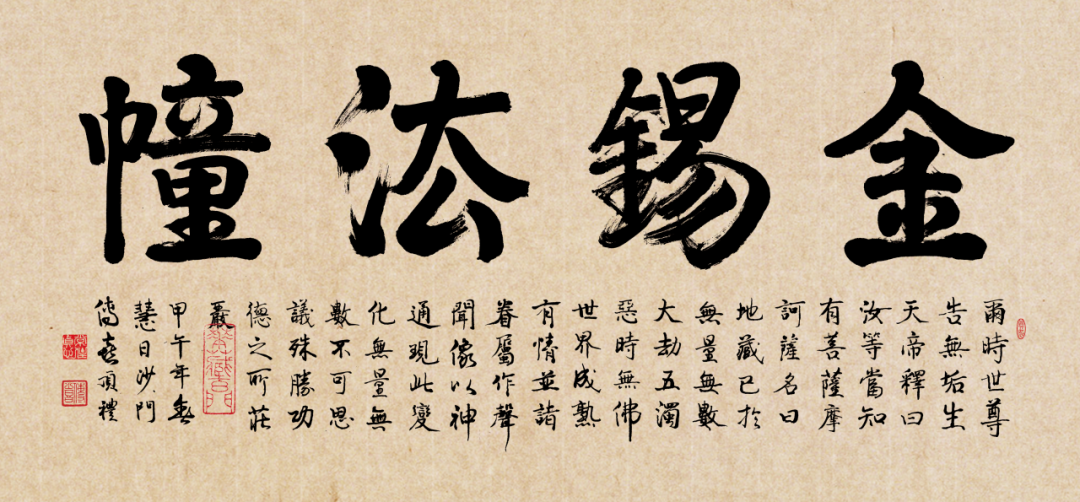 金錫法幢
爾時世尊
告無垢生
天帝釋曰
汝等當知
有菩薩摩
訶薩名曰
地藏已於
無量無數
大劫五濁
惡時無佛
世界成熟
有情並詣
眷屬作聲
聞像以神
通現此變
化無量無
數不可思
議殊勝功
德之所莊
嚴
甲午年春
慧日沙門
傳喜頂禮